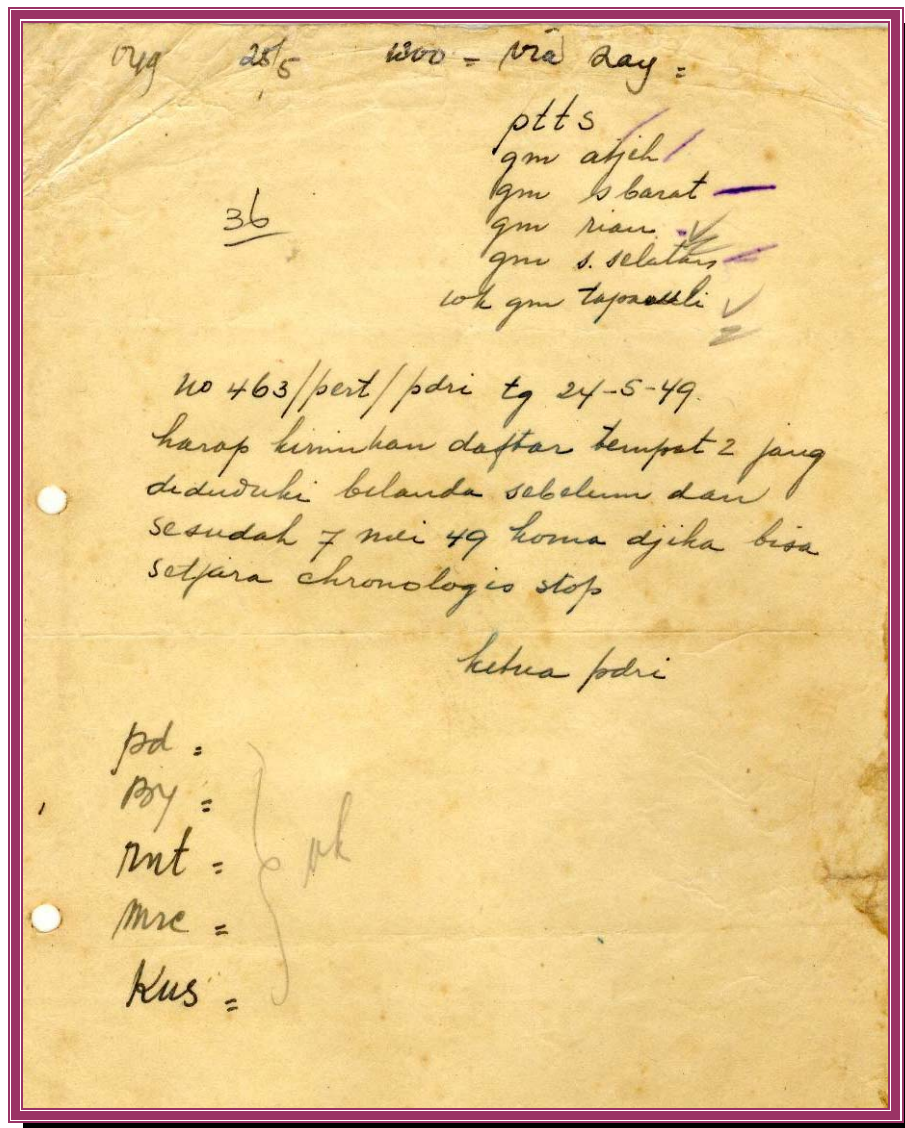 25/5 = via Ray =
ptts
gm atjeh
gm s barat
gm riau
gm s. selatan
wk gm tapanuli
36
no 463/pert/pdri tg 24-5-49.
harap kirimkan daftar tempat2 jang
diduduki belanda sebelum dan
sesudah 7 mei 49 koma djika bisa
setjara chronologis stop
ketua pdri
pd =
By =
rnt =
mre =
Kus =